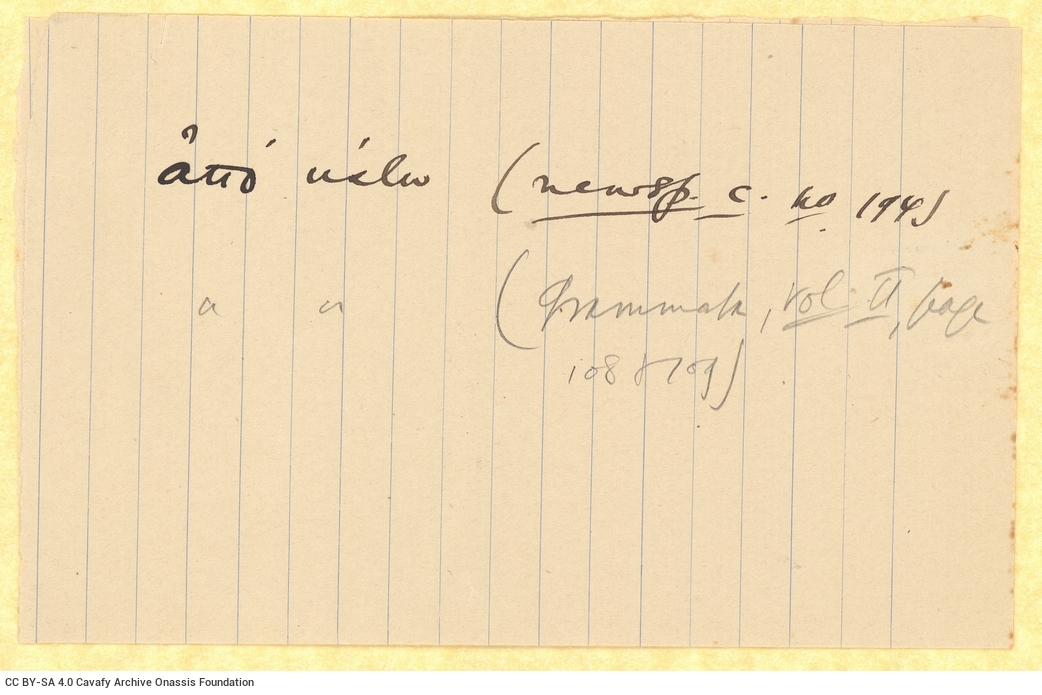 ἀπό κάτω (newsp. c. no 194)
" " (Grammata, vol II, page
108 & 109)
CC BY-SA 4.0 Cavafy Archive Onassis Foundation